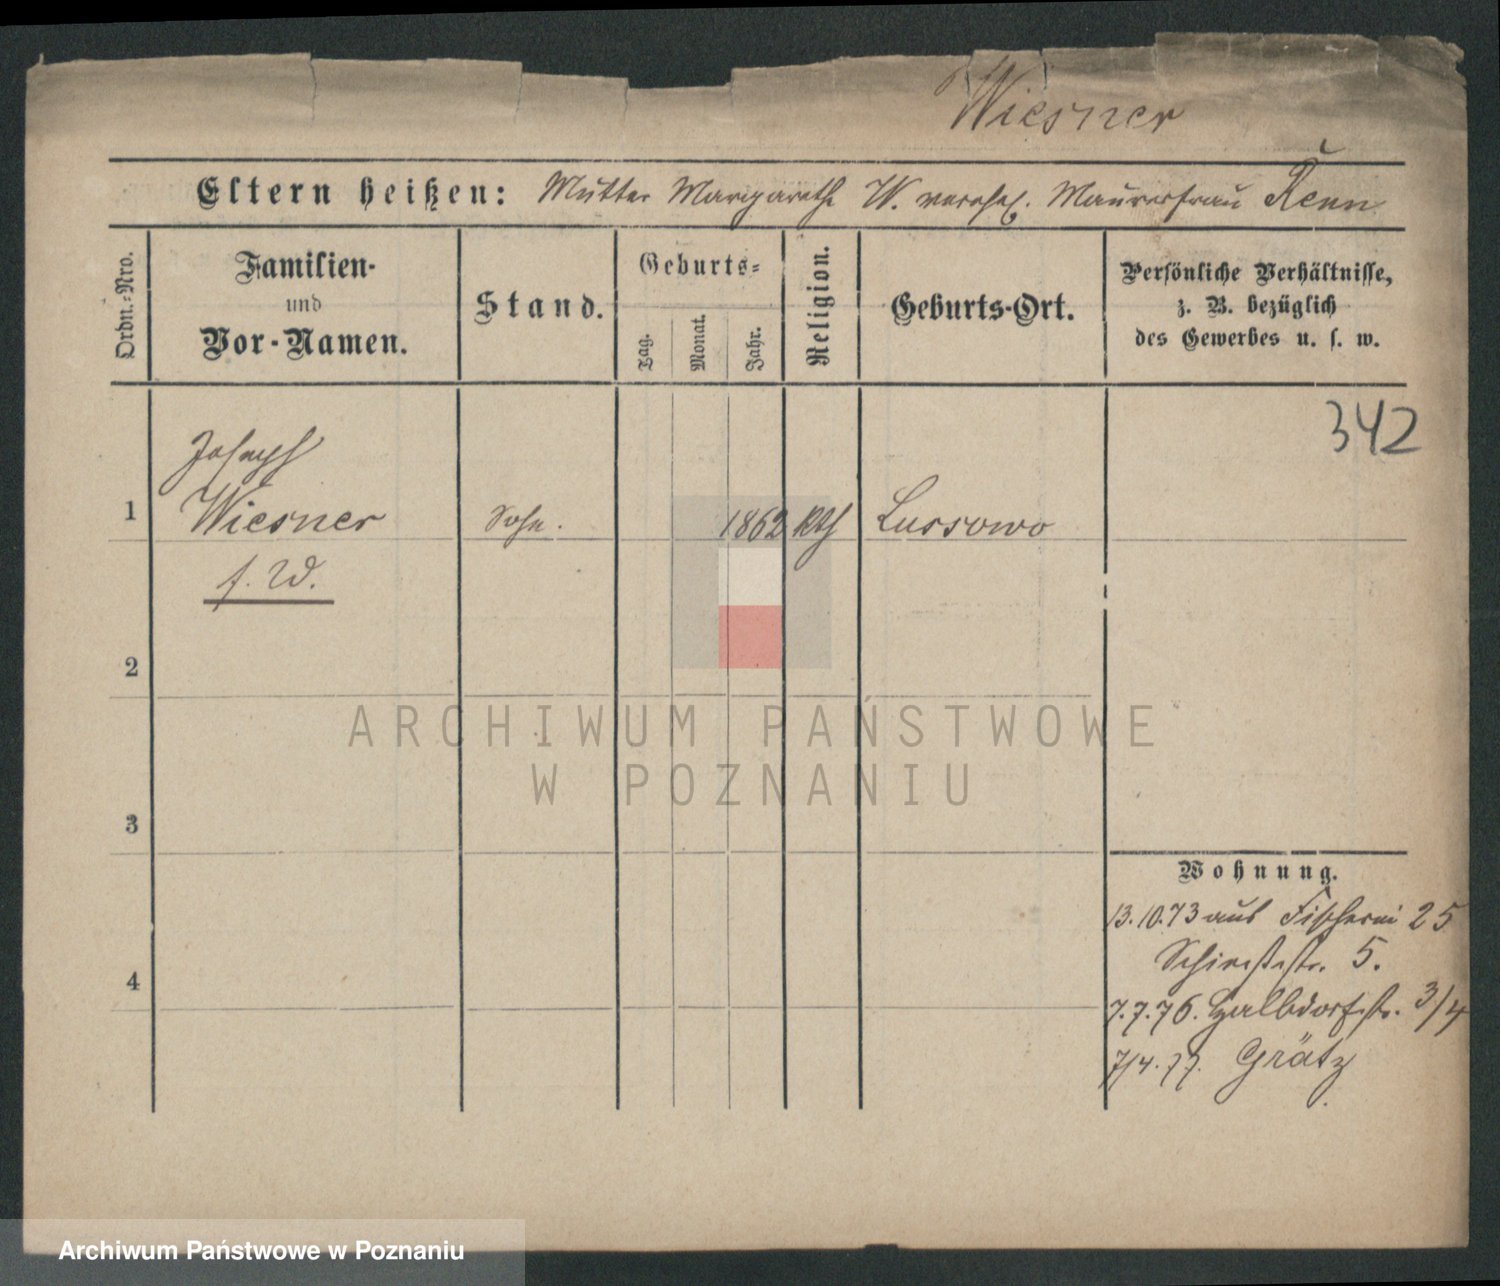 Wiesner
Eltern heißen: Mutter Margarethe W. verehel. Maurerfrau Renn
Ordn.-Nro.
Familien-
und
Vor-Namen.
Stand.
Geburts-
Tag.
Monat.
Jahr.
Religion.
Geburts-Ort.
Persönliche Verhältnisse,
z. B. bezüglich
des Gewerbes u. s. w.
342
Joseph
1 Wiesner Sohn. 1862 kth Lussowo
f. W.
2
ARCHIWUM PAŃSTWOWE
W POZNANIU
3
Wohnung.
13.10.73 aus Fischerei 25
5.
4
7.7.76. Halbdorfstr. 3/4
7/4.77. Grätz
Archiwum Państwowe w Poznaniu